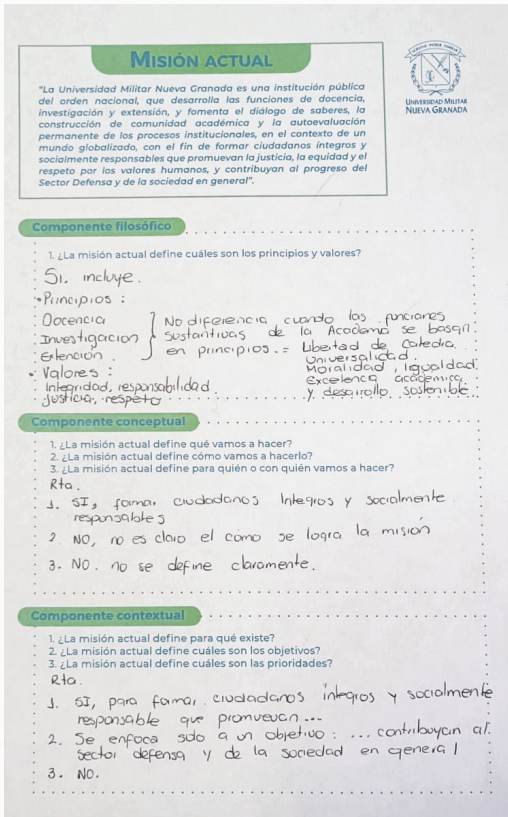 MISIÓN ACTUAL
"La Universidad Militar Nueva Granada es una institución pública
del orden nacional, que desarrolla las funciones de docencia,
investigación y extensión, y fomenta el diálogo de saberes, la
construcción de comunidad académica y la autoevaluación
permanente de los procesos institucionales, en el contexto de un
mundo globalizado, con el fin de formar ciudadanos íntegros y
socialmente responsables que promuevan la justicia, la equidad y el
respeto por los valores humanos, y contribuyan al progreso del
Sector Defensa y de la sociedad en general".
UNIVERSIDAD MILITAR
NUEVA GRANADA
Componente filosófico
1. ¿La misión actual define cuáles son los principios y valores?
Si. incluye.
• Principios :
Docencia
Investigacion
Extención.
No diferencia cuando las funciones
sustantivas de la Academa se basan
en principios. = Libertad de Catedra.
Universalidad.
Moralidad, Igualdad
Excelencia académica
y desarrollo sostenible.
• Valores :
Integridad, responsabilidad
justicia, respeto
Componente conceptual
1. ¿La misión actual define qué vamos a hacer?
2. ¿La misión actual define cómo vamos a hacerlo?
3. ¿La misión actual define para quién o con quién vamos a hacer?
Rta.
1. SI, formar ciudadanos Integros y socialmente
responsables
2. NO, no es claro el como se logra la misión
3. NO. no se define claramente.
Componente contextual
1. ¿La misión actual define para qué existe?
2. ¿La misión actual define cuáles son los objetivos?
3. ¿La misión actual define cuáles son las prioridades?
Rta.
1. SI, para formar ciudadanos íntegros y socialmente
responsable que promuevan ...
2. Se enfoca solo a un objetivo : ... contribuyan al
sector defensa y de la sociedad en general
3. NO.